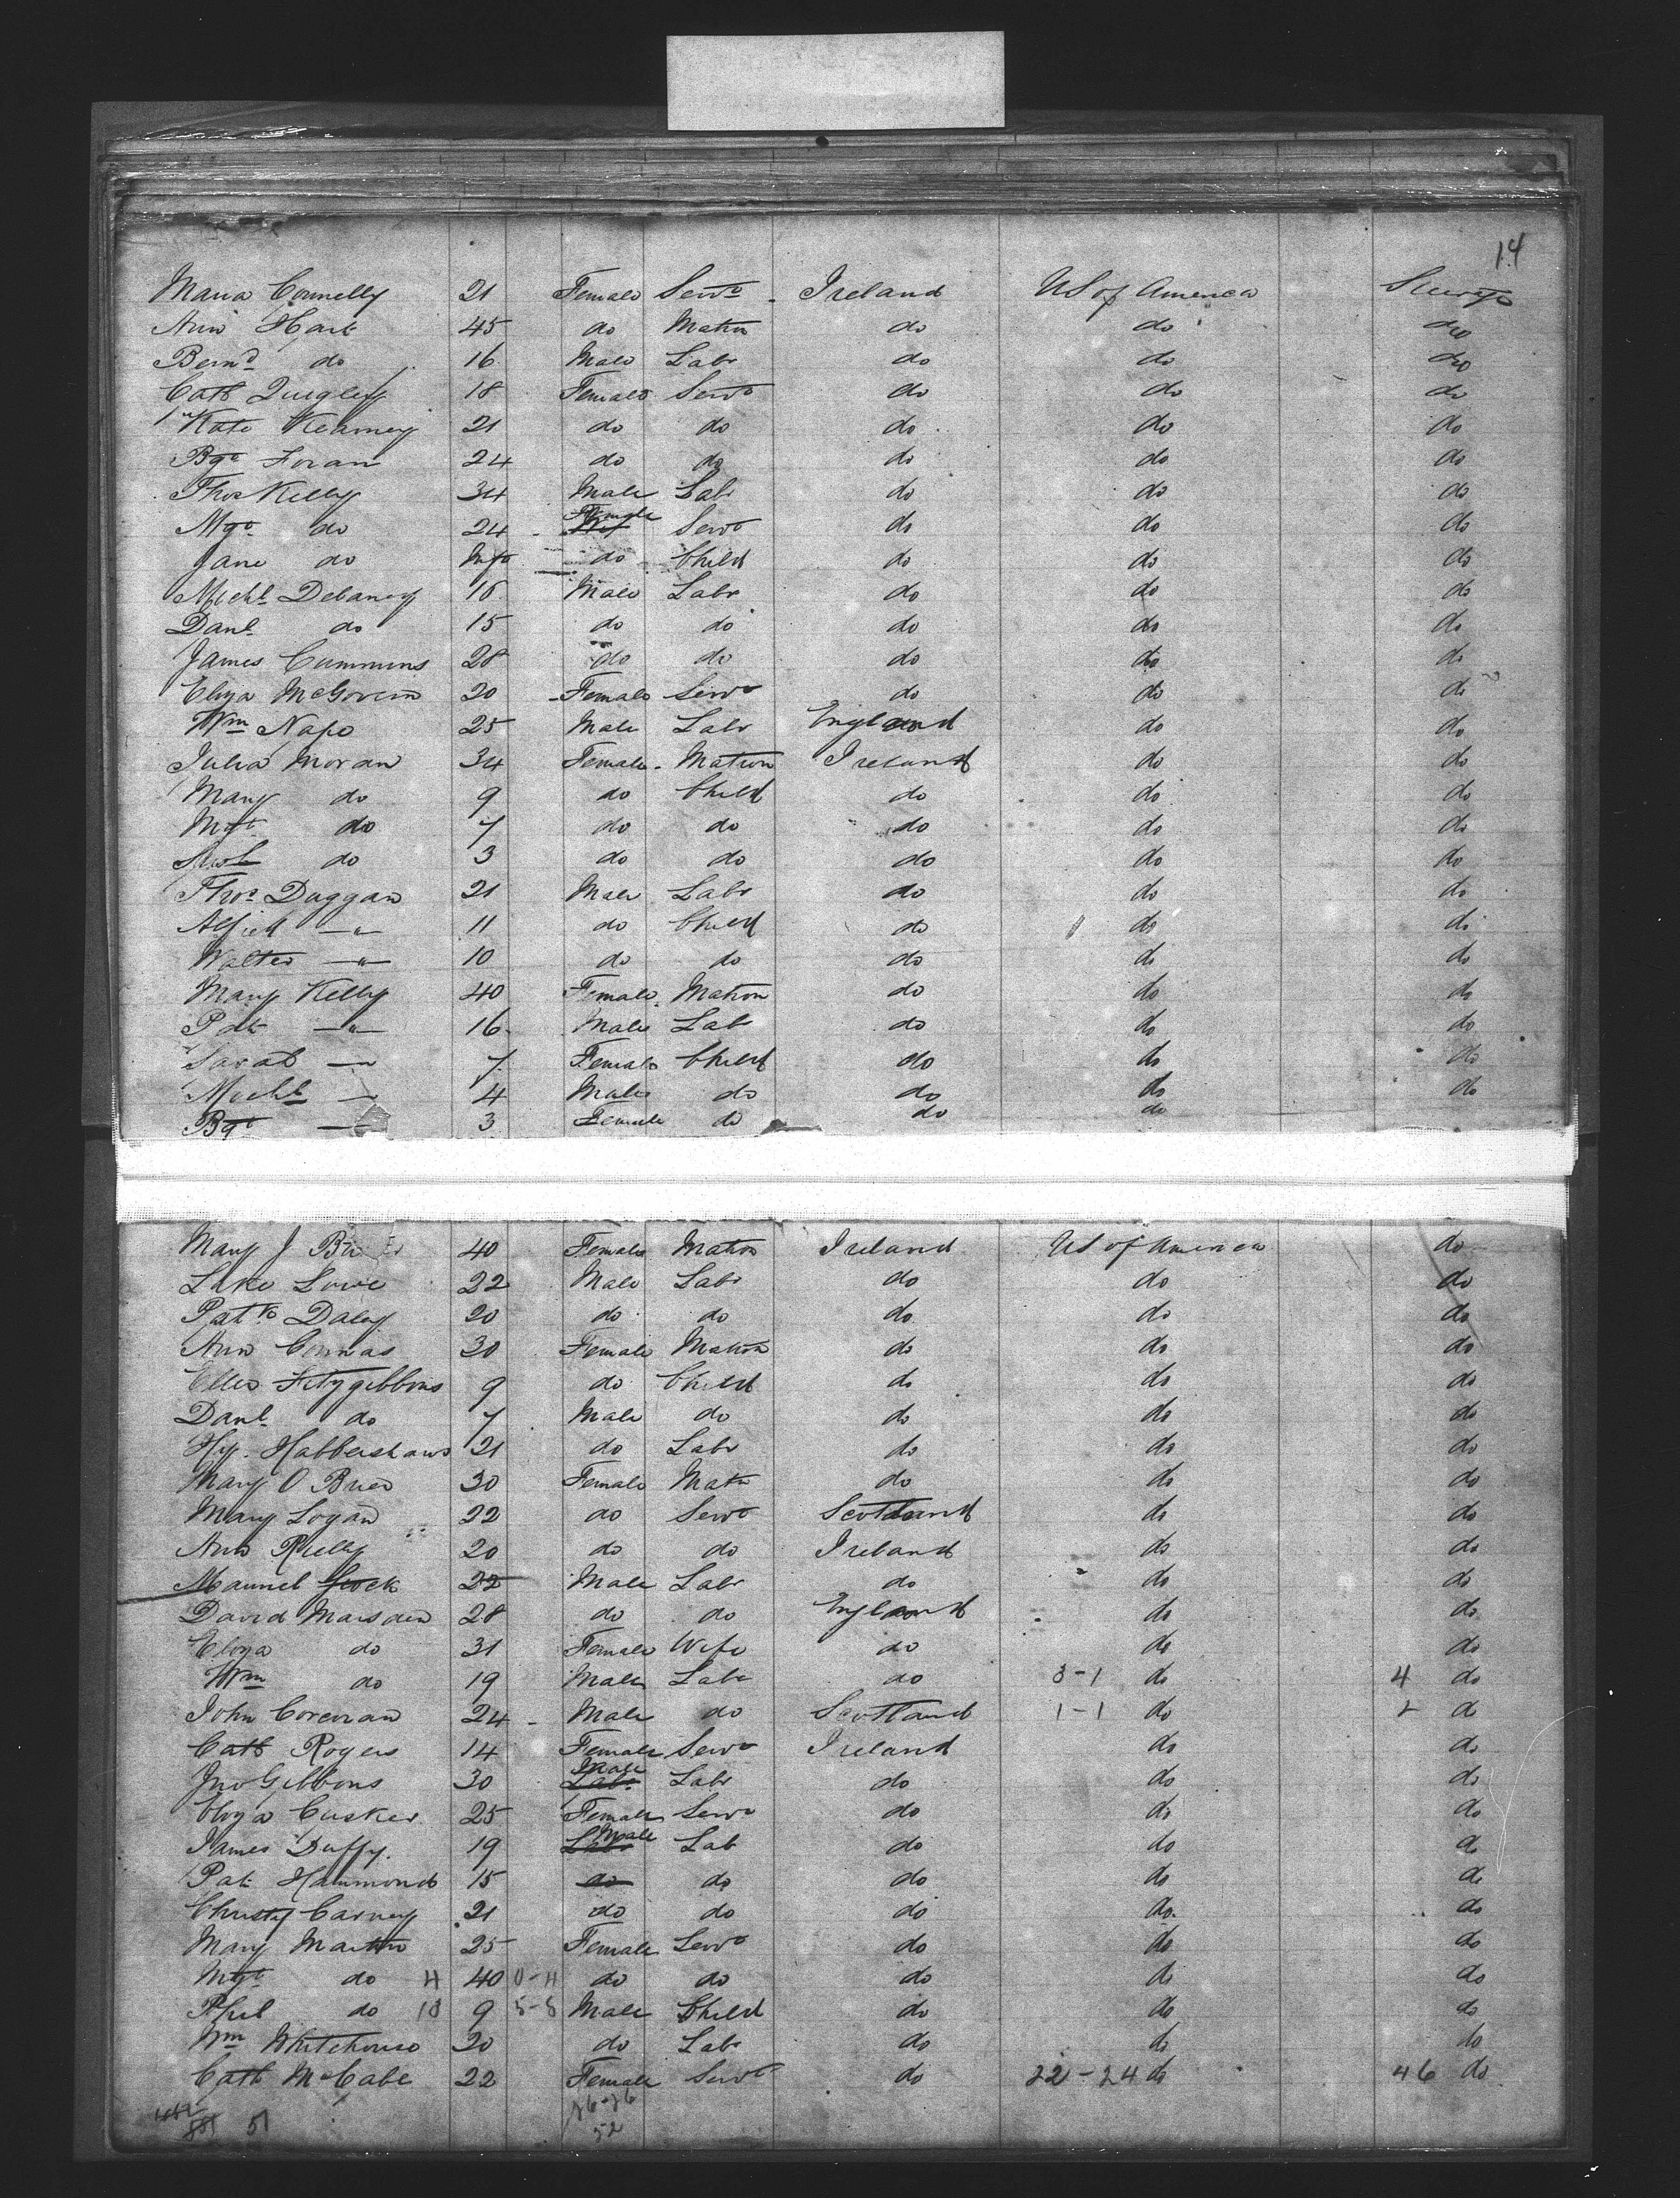 14
Maria Connelly 21 Female Servt Ireland US of America
Ann Hart 45 do Matrn do do do
Bernd do 16 Male Labr do do do
Cath Quigley 18 Female Servt do do do
Kate Kearney 21 do do do do do
Bgt Foran 24 do do do do do
Thos Kelly 34 Male Labr do do do
Mgt do 24 Female Servt do do do
Jane do Inft do Child do do do
Michl Delaney 18 Male Labr do do do
Danl do 15 do do do do do
James Cummins 28 do do do do do
Eliza McGovern 20 Female Servt do do do
Wm Nape 25 Male Labr England do do
Julia Moran 34 Female Matron Ireland do do
Mary do 9 do Child do do do
Mgt do 7 do do do do do
do 3 do do do do do
Thos Duggan 21 Male Labr do do do
Alfred -"- 11 do Child do do do
Walter -"- 10 do do do do do
Mary Kelly 40 Female Matron do do do
Patk -"- 16 Male Labr do do do
Sarah -"- 7 Female Child do do do
Michl -"- 4 Male do do do do
Bgt - 3 Female do do do
Mary J 40 Female Matron Ireland US of America do
Luke Lowe 22 Male Labr do do do
Patk Daley 20 do do do do do
Ann Connas 30 Female Matron do do do
Ellen Fitzgibbons 9 do Child do do do
Danl do 7 Male do do do do
Hy. Habbershaw 21 do Labr do do do
Mary O Brien 30 Female Matn do do do
Mary Logan 22 do Servt Scotland do do
Ann Rielly 20 do do Ireland do do
22 Male Labr do do do
David Marsden 28 do do England do do
Eliza do 31 Female Wife do do do
Wm do 19 Male Labr do 3-1 do 4 do
John Corcoran 24 Male do Scotland 1-1 do 2 do
Cath Rogers 14 Female Servt Ireland do do
Jno Gibbons 30 Male Labr do do do
Eliza Cusker 25 Female Servt do do do
James Duffy. 19 Male Lab do do do
Pat Hammond 15 do do do do do
Christy Carney 21 do do do do do
Mary Martin 25 Female Servt do do do
Mgt do 4 40 0-4 do do do do do
Phil do 10 9 5-5 Male Child do do do
Wm Whitehouse 20 do Labr do do do
Cath McCabe 22 Female Servt do 22-24 do 46 do
51 26-26
52